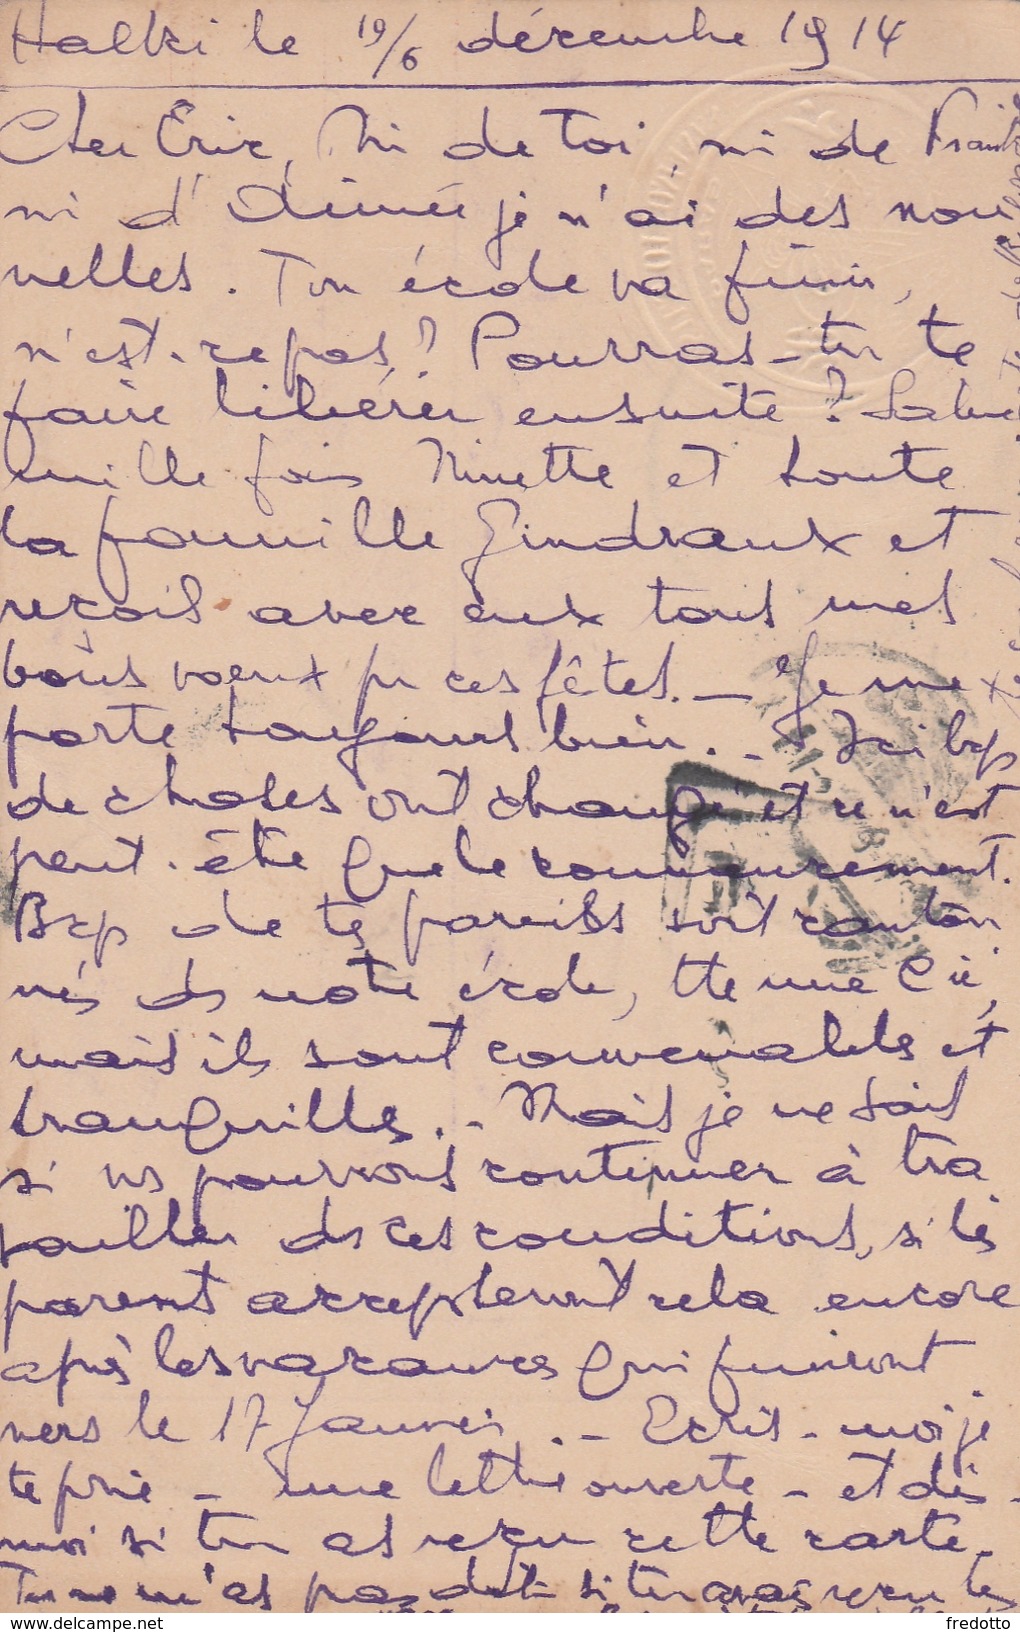 Halki le 19/6 décembre 1914
Cher Eric, Ni de toi, ni de Frank
ni d'Aimée je n'ai des nou
velles. Ton école va finir,
n'est-ce pas? Pourras-tu te
faire libérer ensuite? Salue
mille fois Ninette et toute
la famille Gindraux et
reçois avec eux tous mes
bons voeux pr ces fêtes. — Je me
porte toujours bien. — Ici bcp
de choses ont changé et ce n'est
peut-être que le commencement.
Bcp de tes pareils sont canton
nés ds notre école, tte une Cie,
mais ils sont convenables et
tranquilles. — Mais je ne sais
si ns pourrons continuer à tra
vailler ds ces conditions, si les
parents accepteront cela encore
après les vacances qui finiront
vers le 17 Janvier. — Ecris-moi je
te prie — une lettre ouverte — et dis-
moi si tu as reçu cette carte.
Tu ne m'as pas dit si tu avais reçu les
fredotto